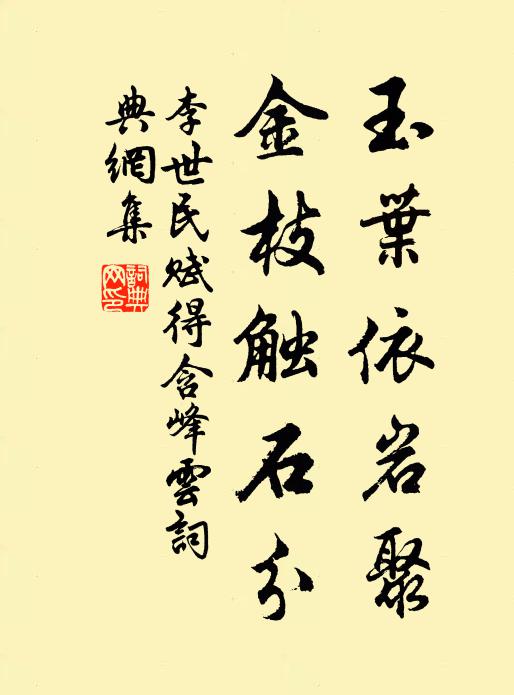 玉葉依岩聚
金枝触石分
李世民賦得含峰雲詞
典網集
詞典网印